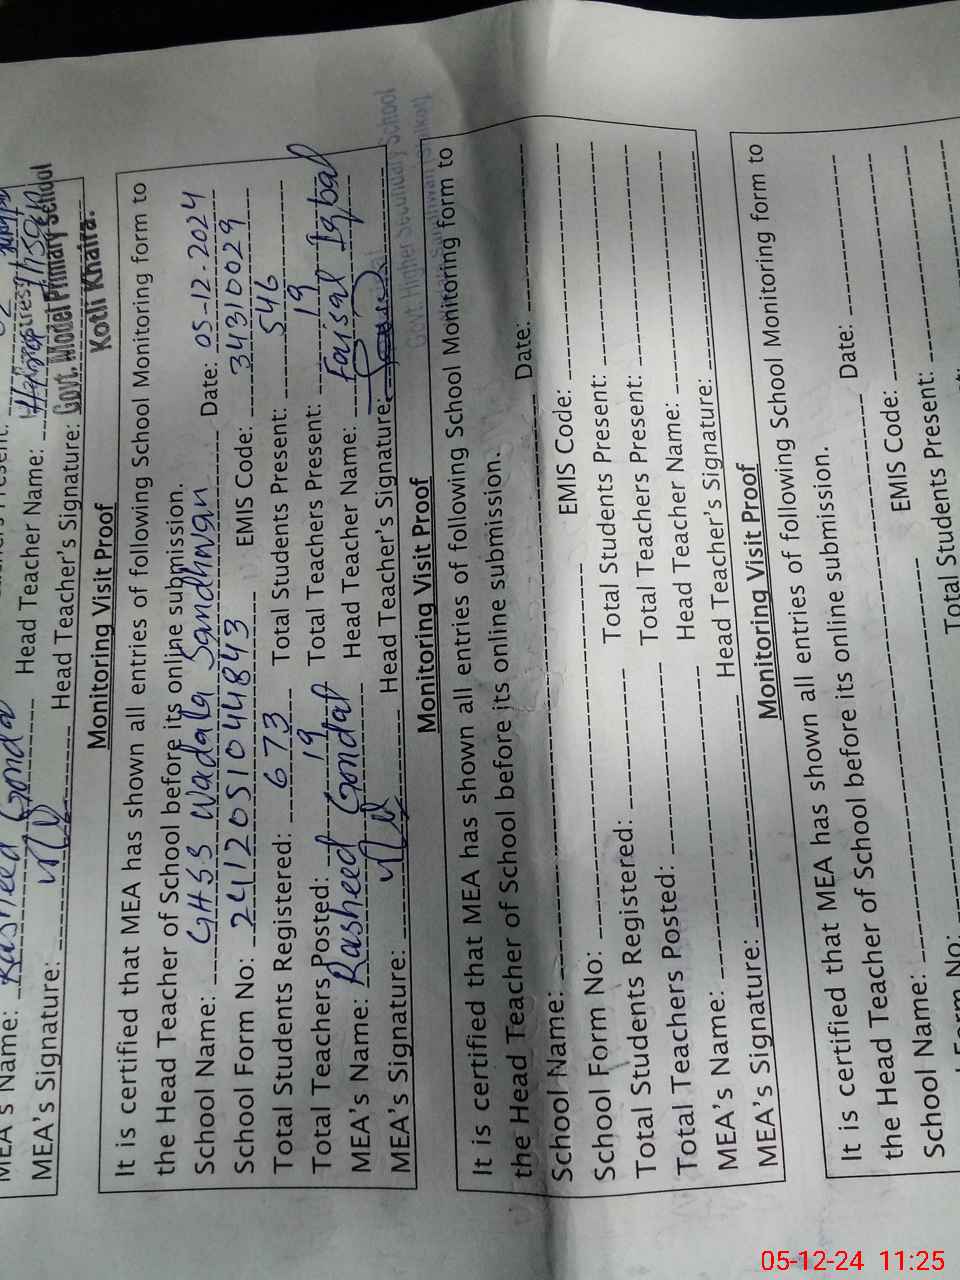 Head Teacher Name:
MEA's Name: Rasheed Gondal
MEA's Signature: Head Teacher's Signature:
Govt. Model Primary School
Kotli Khaira.
Monitoring Visit Proof
It is certified that MEA has shown all entries of following School Monitoring form to
the Head Teacher of School before its online submission.
School Name: GHSS Wadala Sandhwan Date: 05-12-2024
School Form No: 2412051044843 EMIS Code: 34310029
Total Students Registered: 673 Total Students Present: 546
Total Teachers Posted: 19 Total Teachers Present: 19
MEA's Name: Rasheed Gondal Head Teacher Name: Faisal Iqbal
MEA's Signature: Head Teacher's Signature:
Govt. Higher Secondary School
Monitoring Visit Proof
It is certified that MEA has shown all entries of following School Monitoring form to
the Head Teacher of School before its online submission.
School Name: Date:
School Form No: EMIS Code:
Total Students Registered: Total Students Present:
Total Teachers Posted: Total Teachers Present:
MEA's Name: Head Teacher Name:
MEA's Signature: Head Teacher's Signature:
Monitoring Visit Proof
It is certified that MEA has shown all entries of following School Monitoring form to
the Head Teacher of School before its online submission.
School Name: Date:
Form No: EMIS Code:
Total Students Present:
05-12-24 11:25